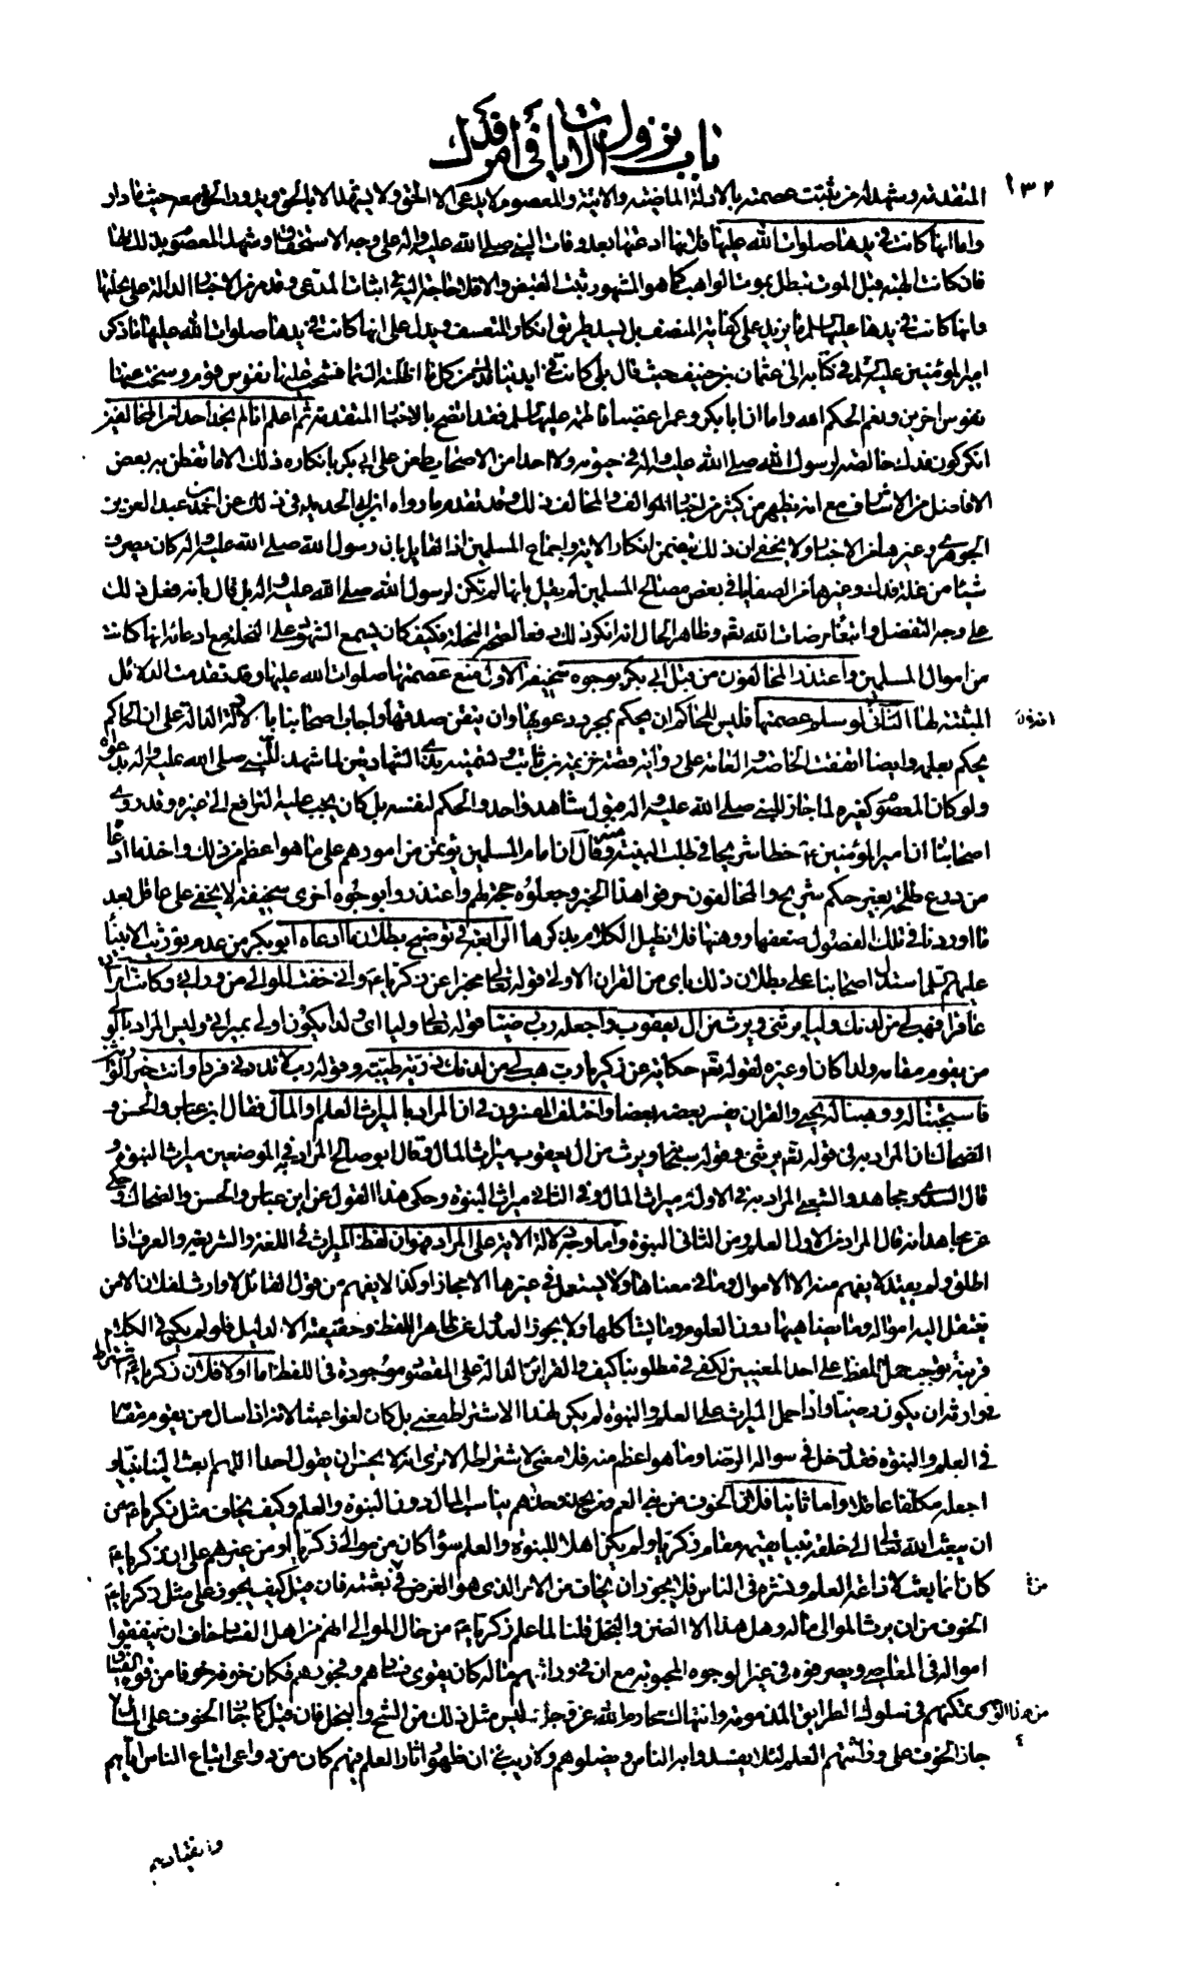 باب نزول الايات في امر فدك
١٣٢
المتقدمة وشهد له من ثبتت عصمته بالادلة الماضية والاتية والمعصوم لا يدعى الا الحق ولا يشهد الا بالحق ويدور الحق معه حيث ما دار
واما انها كانت في يدها صلوات الله عليها فلانها ادعتها بعد وفات النبي صلى الله عليه واله على وجه الاستحقاق وشهد المعصوم بذلك لها
فان كانت الهبة قبل الموت تبطل بموت الواهب كما هو المشهور ثبت القبض والا فلا حاجة اليه في اثبات المدعى وقد مر من الاخبار الدالة على نحلتها
وانها كانت في يدها عليها السلم ما يزيد على كفاية المنصف بل يسد طريق انكار المتعسف ويدل على انها كانت في يدها صلوات الله عليها ما ذكر
امير المؤمنين عليه السلم في كتابه الى عثمان بن حنيف حيث قال بلى كانت في ايدينا فدك من كل ما اظلته السماء فشحت عليها نفوس قوم وسخت عنها
نفوس اخرين ونعم الحكم الله واما ان ابا بكر وعمر اغضبا فاطمة عليها السلم فقد اتضح بالاخبار المتقدمة ثم اعلم انا لم نجد احدا من المخالفين
انكر كون فدك خالصة لرسول الله صلى الله عليه واله في حيوته ولا احدا من الاصحاب طعن على ابي بكر بانكاره ذلك الا ما تفطن به بعض
الافاضل من الاشارف مع انه يظهر من كثير من اخبار المؤالف والمخالف ذلك وقد تقدم ما رواه ابن ابي الحديد في ذلك عن احمد بن عبد العزيز
الجوهري وغيرها من الاخبار ولا يخفى ان ذلك يتضمن انكار الاية واجماع المسلمين اذ القايل بان رسول الله صلى الله عليه واله كان يصرف
شيئا من غلة فدك وغيرها من الصفايا في بعض مصالح المسلمين لم يقل بانها لم تكن لرسول الله صلى الله عليه واله بل قال بانه فعل ذلك
على وجه التفضل وابتغاء مرضات الله تعم وظاهر الحال انه انكر ذلك دفعا لصحة النحلة فكيف كان يسمع الشهود على النحلة مع ادعائه انها كانت
من اموال المسلمين واعتذر المخالفون من قبل ابي بكر بوجوه سخيفة الاول منع عصمتها صلوات الله عليها وقد تقدمت الدلائل
المثبتة لها الثاني انه لو سلم عصمتها فليس للحاكم ان يحكم بمجرد دعويها وان تيقن صدقها واجاب اصحابنا بالادلة الدالة على ان الحاكم
يحكم بعلمه وايضا اتفقت الخاصة والعامة على رواية قصة خزيمة بن ثابت وتسميته بذي الشهادتين لما شهد للنبي صلى الله عليه واله بدعواه
ولو كان المعصوم كغيره لما جاز للنبي صلى الله عليه واله قبول شاهد واحد والحكم لنفسه بل كان يجب عليه الترافع الى غيره وقد روى
اصحابنا ان امير المؤمنين ع خطا شريحا في طلب البينة منه وقال ان امام المسلمين يؤتمن من امورهم على ما هو اعظم من ذلك واخذ ما ادعاه
من درع طلحة بغير حكم شريح والمخالفون حرفوا هذا الخبر وجعلوه حجة لهم واعتذروا بوجوه اخرى سخيفة لا يخفى على عاقل بعد
ما اوردنا في تلك الفصول ضعفها ووهنها فلا نطيل الكلام بذكرها الرابعة في توضيح بطلان ما ادعاه ابو بكر من عدم توريث الانبياء
عليهم السلم استدل اصحابنا على بطلان ذلك باي من القران الاولى قوله تعالى مخبرا عن زكريا ع واني خفت الموالي من ورائي وكانت امراتي
عاقرا فهب لي من لدنك وليا يرثني ويرث من ال يعقوب واجعله رب رضيا قوله تعالى وليا اى ولدا يكون اولى بميراثي وليس المراد بالولي
من يقوم مقامه ولدا كان او غيره لقوله تعم حكاية عن زكريا رب هب لي من لدنك ذرية طيبة وقوله رب لا تذرني فردا وانت خير الوارثين
فاستجبنا له ووهبنا له يحيى والقران يفسر بعضه بعضا واختلف المفسرون في ان المراد بالميراث العلم او المال فقال ابن عباس والحسن و
الضحاك ان المراد به في قوله تعم يرثني وقوله سبحانه ويرث من ال يعقوب ميراث المال وقال ابو صالح المراد في الموضعين ميراث النبوة و
قال السدي ومجاهد والشعبي المراد به في الاول ميراث المال وفي الثاني ميراث النبوة وحكى هذا القول عن ابن عباس والحسن والضحاك وحكى
عن مجاهد انه قال المراد من الاول العلم ومن الثاني النبوة واما وجه دلالة الاية على المراد فهو ان لفظ الميراث في اللغة والشريعة والعرف اذا
اطلق ولم يقيد لا يفهم منه الا الاموال وما في معناها ولا يستعمل في غيرها الا مجازا وكذا لا يفهم من قول القائل لا وارث لفلان الا من
ينتقل اليه امواله وما يضاهيها دون العلوم وما يشاكلها ولا يجوز العدول عن ظاهر اللفظ وحقيقته الا لدليل فلو لم يكن في الكلام
قرينة توجب حمل اللفظ على احد المعنيين لكفى في مطلوبنا كيف والقرائن الدالة على المقصود موجودة في اللفظ اما اولا فلان زكريا ع اشترط
في وارثه ان يكون رضيا واذا حمل الميراث على العلم والنبوة لم يكن لهذا الاشتراط معنى بل كان لغوا عبثا لانه اذا سال من يقوم مقامه
في العلم والنبوة فقد دخل في سؤاله الرضا وما هو اعظم منه فلا معنى لاشتراطه الا ترى انه لا يحسن ان يقول احد اللهم ابعث الينا نبيا و
اجعله مكلفا عاقلا واما ثانيا فلان الخوف من بني العم ومن يحذو حذوهم يناسب المال دون النبوة والعلم وكيف يخاف مثل زكريا ع من
ان يبعث الله تعالى الى خلقه نبيا يقيمه مقام زكريا ولم يكن اهلا للنبوة والعلم سواء كان من موالي زكريا او من غيرهم على ان زكريا ع
كان انما بعث لاذاعة العلم ونشره في الناس فلا يجوز ان يخاف من الامر الذي هو الغرض في بعثته فان قيل كيف يجوز على مثل زكريا ع
الخوف من ان يرث الموالي ماله وهل هذا الا الضن والبخل قلنا لما علم زكريا ع من حال الموالي انهم من اهل الفساد خاف ان ينفقوا
امواله في المعاصي ويصرفوه في غير الوجوه المحبوبة مع ان في وراثتهم ماله كان يقوى فسادهم وفجورهم فكان خوفه خوفا من قوة الفساق
وتمكنهم في سلوك الطرايق المذمومة وانتهاك محارم الله عز وجل وليس مثل ذلك من الشح والبخل فان قيل كما جاز الخوف على المال
جاز الخوف على وراثتهم العلم لئلا يفسدوا به الناس ويضلوهم ولا ريب في ان ظهور اثار العلم فيهم كان من دواعى اتباع الناس اياهم
وانقيادهم